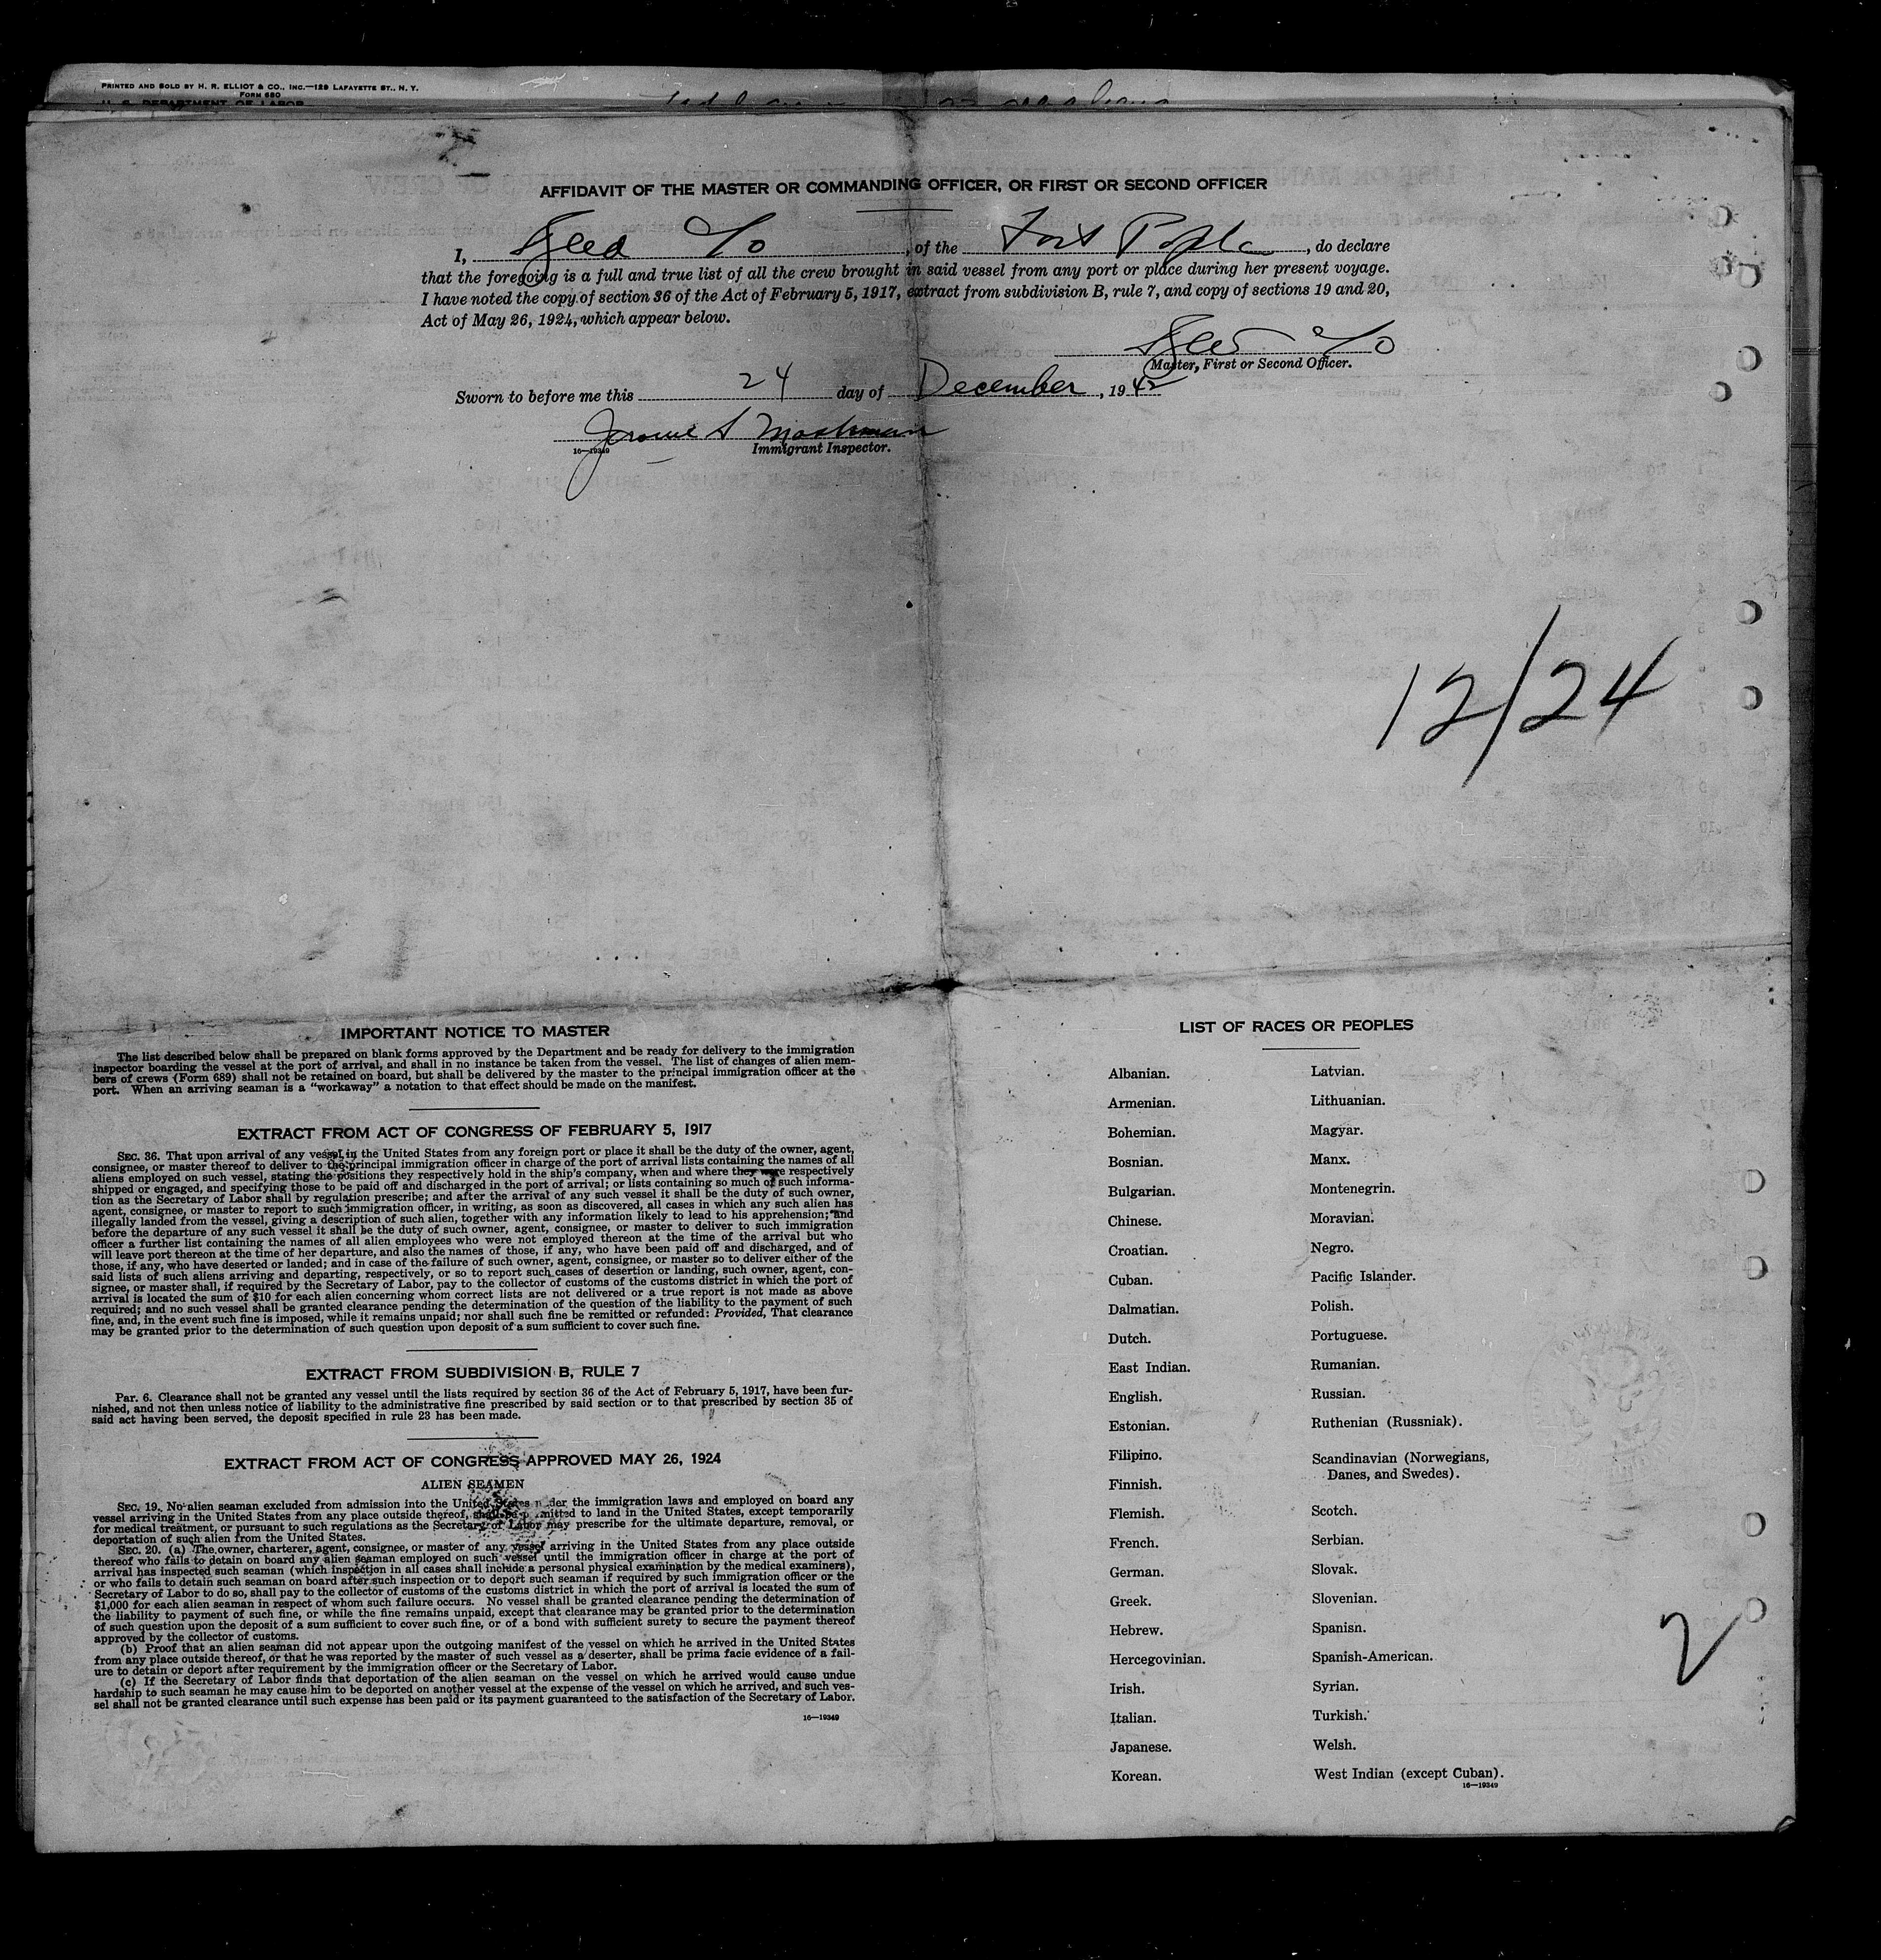 PRINTED AND SOLD BY H. R. ELLIOT & CO., INC.—129 LAFAYETTE ST., N. Y.
FORM 680
U. S. DEPARTMENT OF LABOR
AFFIDAVIT OF THE MASTER OR COMMANDING OFFICER, OR FIRST OR SECOND OFFICER
I, , of the Fort , do declare
that the foregoing is a full and true list of all the crew brought in said vessel from any port or place during her present voyage.
I have noted the copy of section 36 of the Act of February 5, 1917, extract from subdivision B, rule 7, and copy of sections 19 and 20,
Act of May 26, 1924, which appear below.
Master, First or Second Officer.
Sworn to before me this 24 day of December, 1942
Jerome S
16—19349 Immigrant Inspector.
12/24
IMPORTANT NOTICE TO MASTER
The list described below shall be prepared on blank forms approved by the Department and be ready for delivery to the immigration
inspector boarding the vessel at the port of arrival, and shall in no instance be taken from the vessel. The list of changes of alien mem-
bers of crews (Form 689) shall not be retained on board, but shall be delivered by the master to the principal immigration officer at the
port. When an arriving seaman is a "workaway" a notation to that effect should be made on the manifest.
EXTRACT FROM ACT OF CONGRESS OF FEBRUARY 5, 1917
SEC. 36. That upon arrival of any vessel in the United States from any foreign port or place it shall be the duty of the owner, agent,
consignee, or master thereof to deliver to the principal immigration officer in charge of the port of arrival lists containing the names of all
aliens employed on such vessel, stating the positions they respectively hold in the ship's company, when and where they were respectively
shipped or engaged, and specifying those to be paid off and discharged in the port of arrival; or lists containing so much of such informa-
tion as the Secretary of Labor shall by regulation prescribe; and after the arrival of any such vessel it shall be the duty of such owner,
agent, consignee, or master to report to such immigration officer, in writing, as soon as discovered, all cases in which any such alien has
illegally landed from the vessel, giving a description of such alien, together with any information likely to lead to his apprehension; and
before the departure of any such vessel it shall be the duty of such owner, agent, consignee, or master to deliver to such immigration
officer a further list containing the names of all alien employees who were not employed thereon at the time of the arrival but who
will leave port thereon at the time of her departure, and also the names of those, if any, who have been paid off and discharged, and of
those, if any, who have deserted or landed; and in case of the failure of such owner, agent, consignee, or master so to deliver either of the
said lists of such aliens arriving and departing, respectively, or so to report such cases of desertion or landing, such owner, agent, con-
signee, or master shall, if required by the Secretary of Labor, pay to the collector of customs of the customs district in which the port of
arrival is located the sum of $10 for each alien concerning whom correct lists are not delivered or a true report is not made as above
required; and no such vessel shall be granted clearance pending the determination of the question of the liability to the payment of such
fine, and, in the event such fine is imposed, while it remains unpaid; nor shall such fine be remitted or refunded: Provided, That clearance
may be granted prior to the determination of such question upon deposit of a sum sufficient to cover such fine.
EXTRACT FROM SUBDIVISION B, RULE 7
PAR. 6. Clearance shall not be granted any vessel until the lists required by section 36 of the Act of February 5, 1917, have been fur-
nished, and not then unless notice of liability to the administrative fine prescribed by said section or to that prescribed by section 35 of
said act having been served, the deposit specified in rule 23 has been made.
EXTRACT FROM ACT OF CONGRESS APPROVED MAY 26, 1924
ALIEN SEAMEN
SEC. 19. No alien seaman excluded from admission into the United States under the immigration laws and employed on board any
vessel arriving in the United States from any place outside thereof, shall be permitted to land in the United States, except temporarily
for medical treatment, or pursuant to such regulations as the Secretary of Labor may prescribe for the ultimate departure, removal, or
deportation of such alien from the United States.
SEC. 20. (a) The owner, charterer, agent, consignee, or master of any vessel arriving in the United States from any place outside
thereof who fails to detain on board any alien seaman employed on such vessel until the immigration officer in charge at the port of
arrival has inspected such seaman (which inspection in all cases shall include a personal physical examination by the medical examiners),
or who fails to detain such seaman on board after such inspection or to deport such seaman if required by such immigration officer or the
Secretary of Labor to do so, shall pay to the collector of customs of the customs district in which the port of arrival is located the sum of
$1,000 for each alien seaman in respect of whom such failure occurs. No vessel shall be granted clearance pending the determination of
the liability to payment of such fine, or while the fine remains unpaid, except that clearance may be granted prior to the determination
of such question upon the deposit of a sum sufficient to cover such fine, or of a bond with sufficient surety to secure the payment thereof
approved by the collector of customs.
(b) Proof that an alien seaman did not appear upon the outgoing manifest of the vessel on which he arrived in the United States
from any place outside thereof, or that he was reported by the master of such vessel as a deserter, shall be prima facie evidence of a fail-
ure to detain or deport after requirement by the immigration officer or the Secretary of Labor.
(c) If the Secretary of Labor finds that deportation of the alien seaman on the vessel on which he arrived would cause undue
hardship to such seaman he may cause him to be deported on another vessel at the expense of the vessel on which he arrived, and such ves-
sel shall not be granted clearance until such expense has been paid or its payment guaranteed to the satisfaction of the Secretary of Labor.
16—19349
LIST OF RACES OR PEOPLES
Albanian.
Armenian.
Bohemian.
Bosnian.
Bulgarian.
Chinese.
Croatian.
Cuban.
Dalmatian.
Dutch.
East Indian.
English.
Estonian.
Filipino.
Finnish.
Flemish.
French.
German.
Greek.
Hebrew.
Hercegovinian.
Irish.
Italian.
Japanese.
Korean.
Latvian.
Lithuanian.
Magyar.
Manx.
Montenegrin.
Moravian.
Negro.
Pacific Islander.
Polish.
Portuguese.
Rumanian.
Russian.
Ruthenian (Russniak).
Scandinavian (Norwegians,
Danes, and Swedes).
Scotch.
Serbian.
Slovak.
Slovenian.
Spanish.
Spanish-American.
Syrian.
Turkish.
Welsh.
West Indian (except Cuban).
16—19349
2